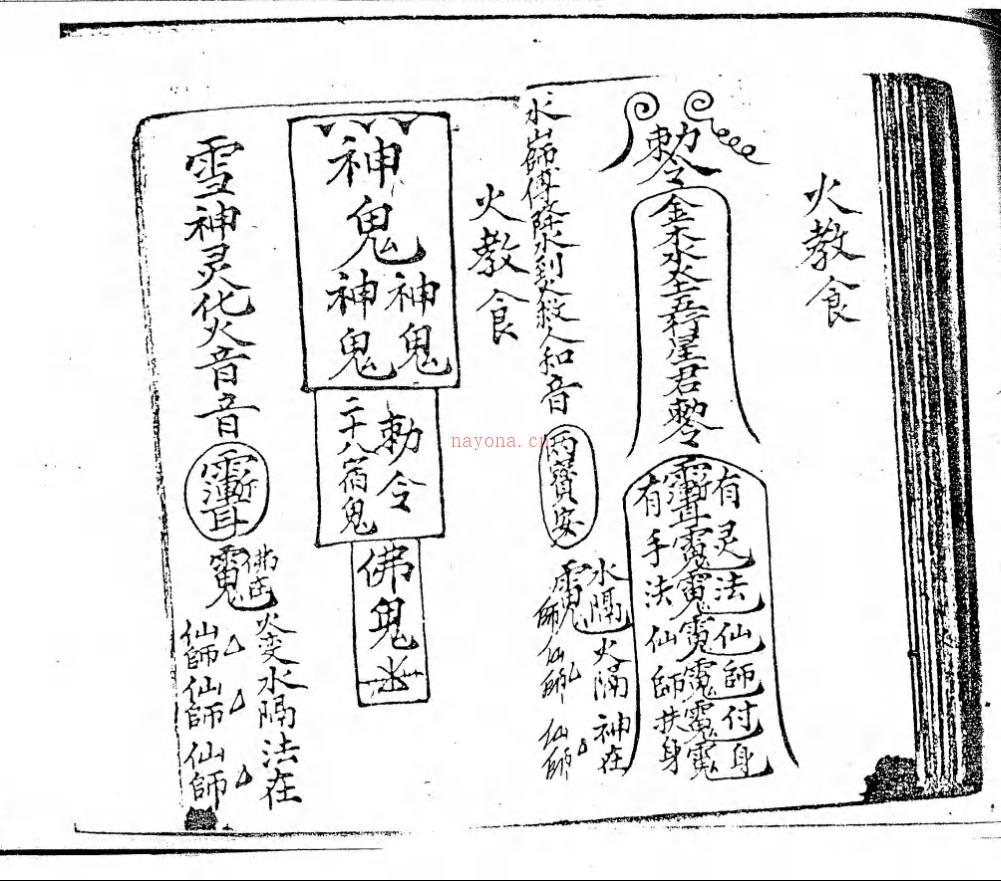 火教食
勅令
金木水圣五行星君勅令
有灵法仙師付身
有手法仙師扶身
水師傅降水到火殺人和音
雨寶安
水隔火隔神在
師仙師仙師
火教食
神鬼
神鬼
神鬼
勅令
二十八宿鬼
佛鬼
雪神灵化火音音
火变水隔法在
仙師仙師仙師
nayona.cn